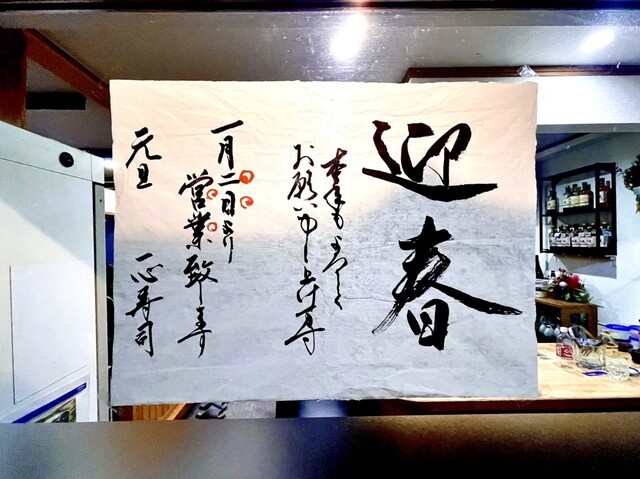 迎春
本年もよろしく
お願い申し上げます
一月二日より
営業致します
元旦
一心寿司